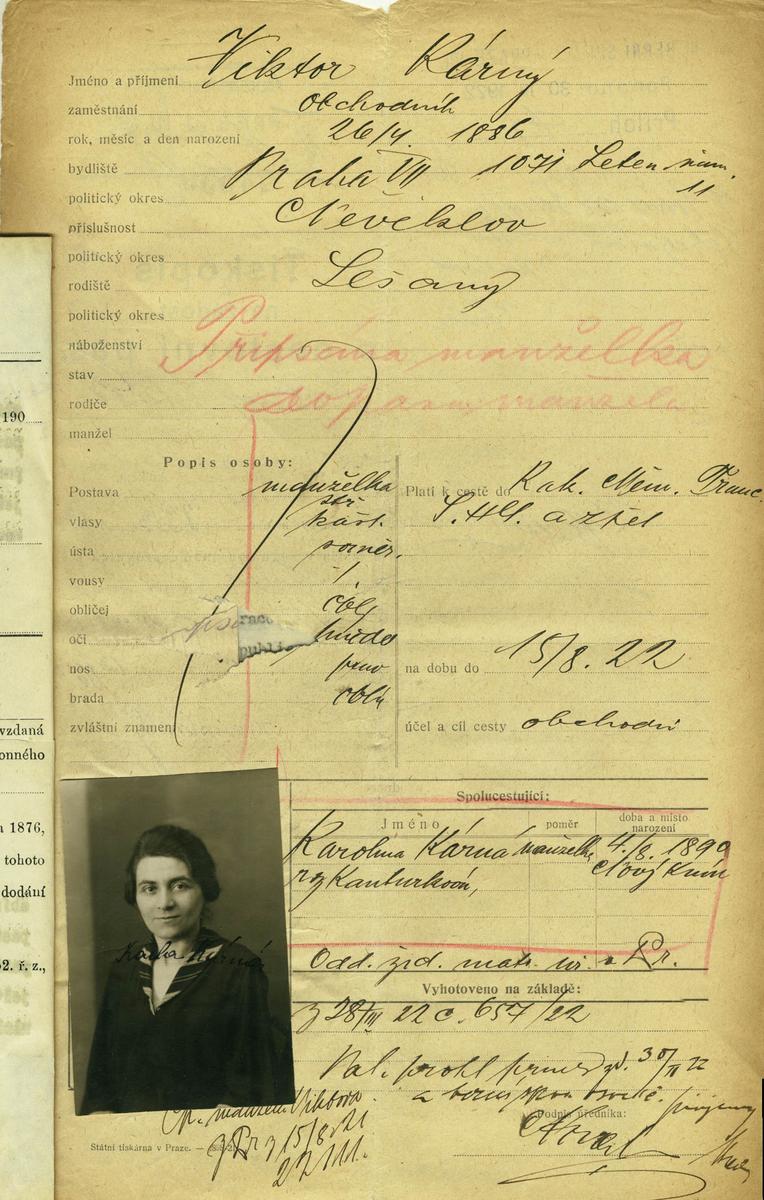 Jméno a příjmení Viktor Kárný
zaměstnání obchodník
rok, měsíc a den narození 26/4. 1886
bydliště Praha VII 1071 Leten. nám.
11
politický okres
příslušnost Neveklov
politický okres
rodiště Lešany
politický okres
náboženství
Připsána manželka
do pasu manžela
stav
rodiče
manžel
Popis osoby:
Postava manželka
stř.
vlasy kašt.
ústa souměr.
vousy /
obličej obl.
oči hnědé
nos
brada oblá
zvláštní znamení
Platí k cestě do Rak. Něm. Franc.
S.H.S. a zpět
na dobu do 15/8. 22
účel a cíl cesty obchodní
190
vzdaná
onného
a 1876,
tohoto
dodání
2. ř. z.,
Spolucestující:
Jméno poměr doba a místo narození
Karolina Kárná manželka 4./8. 1890
roz Kanturková, Nový Knín
Odd. žid. matr. v Pr.
Vyhotoveno na základě:
z 28/III 22 č. 657/22
30/III 22
Podpis úředníka:
Viktora
z Pr z 15/8 21
Státní tiskárna v Praze.